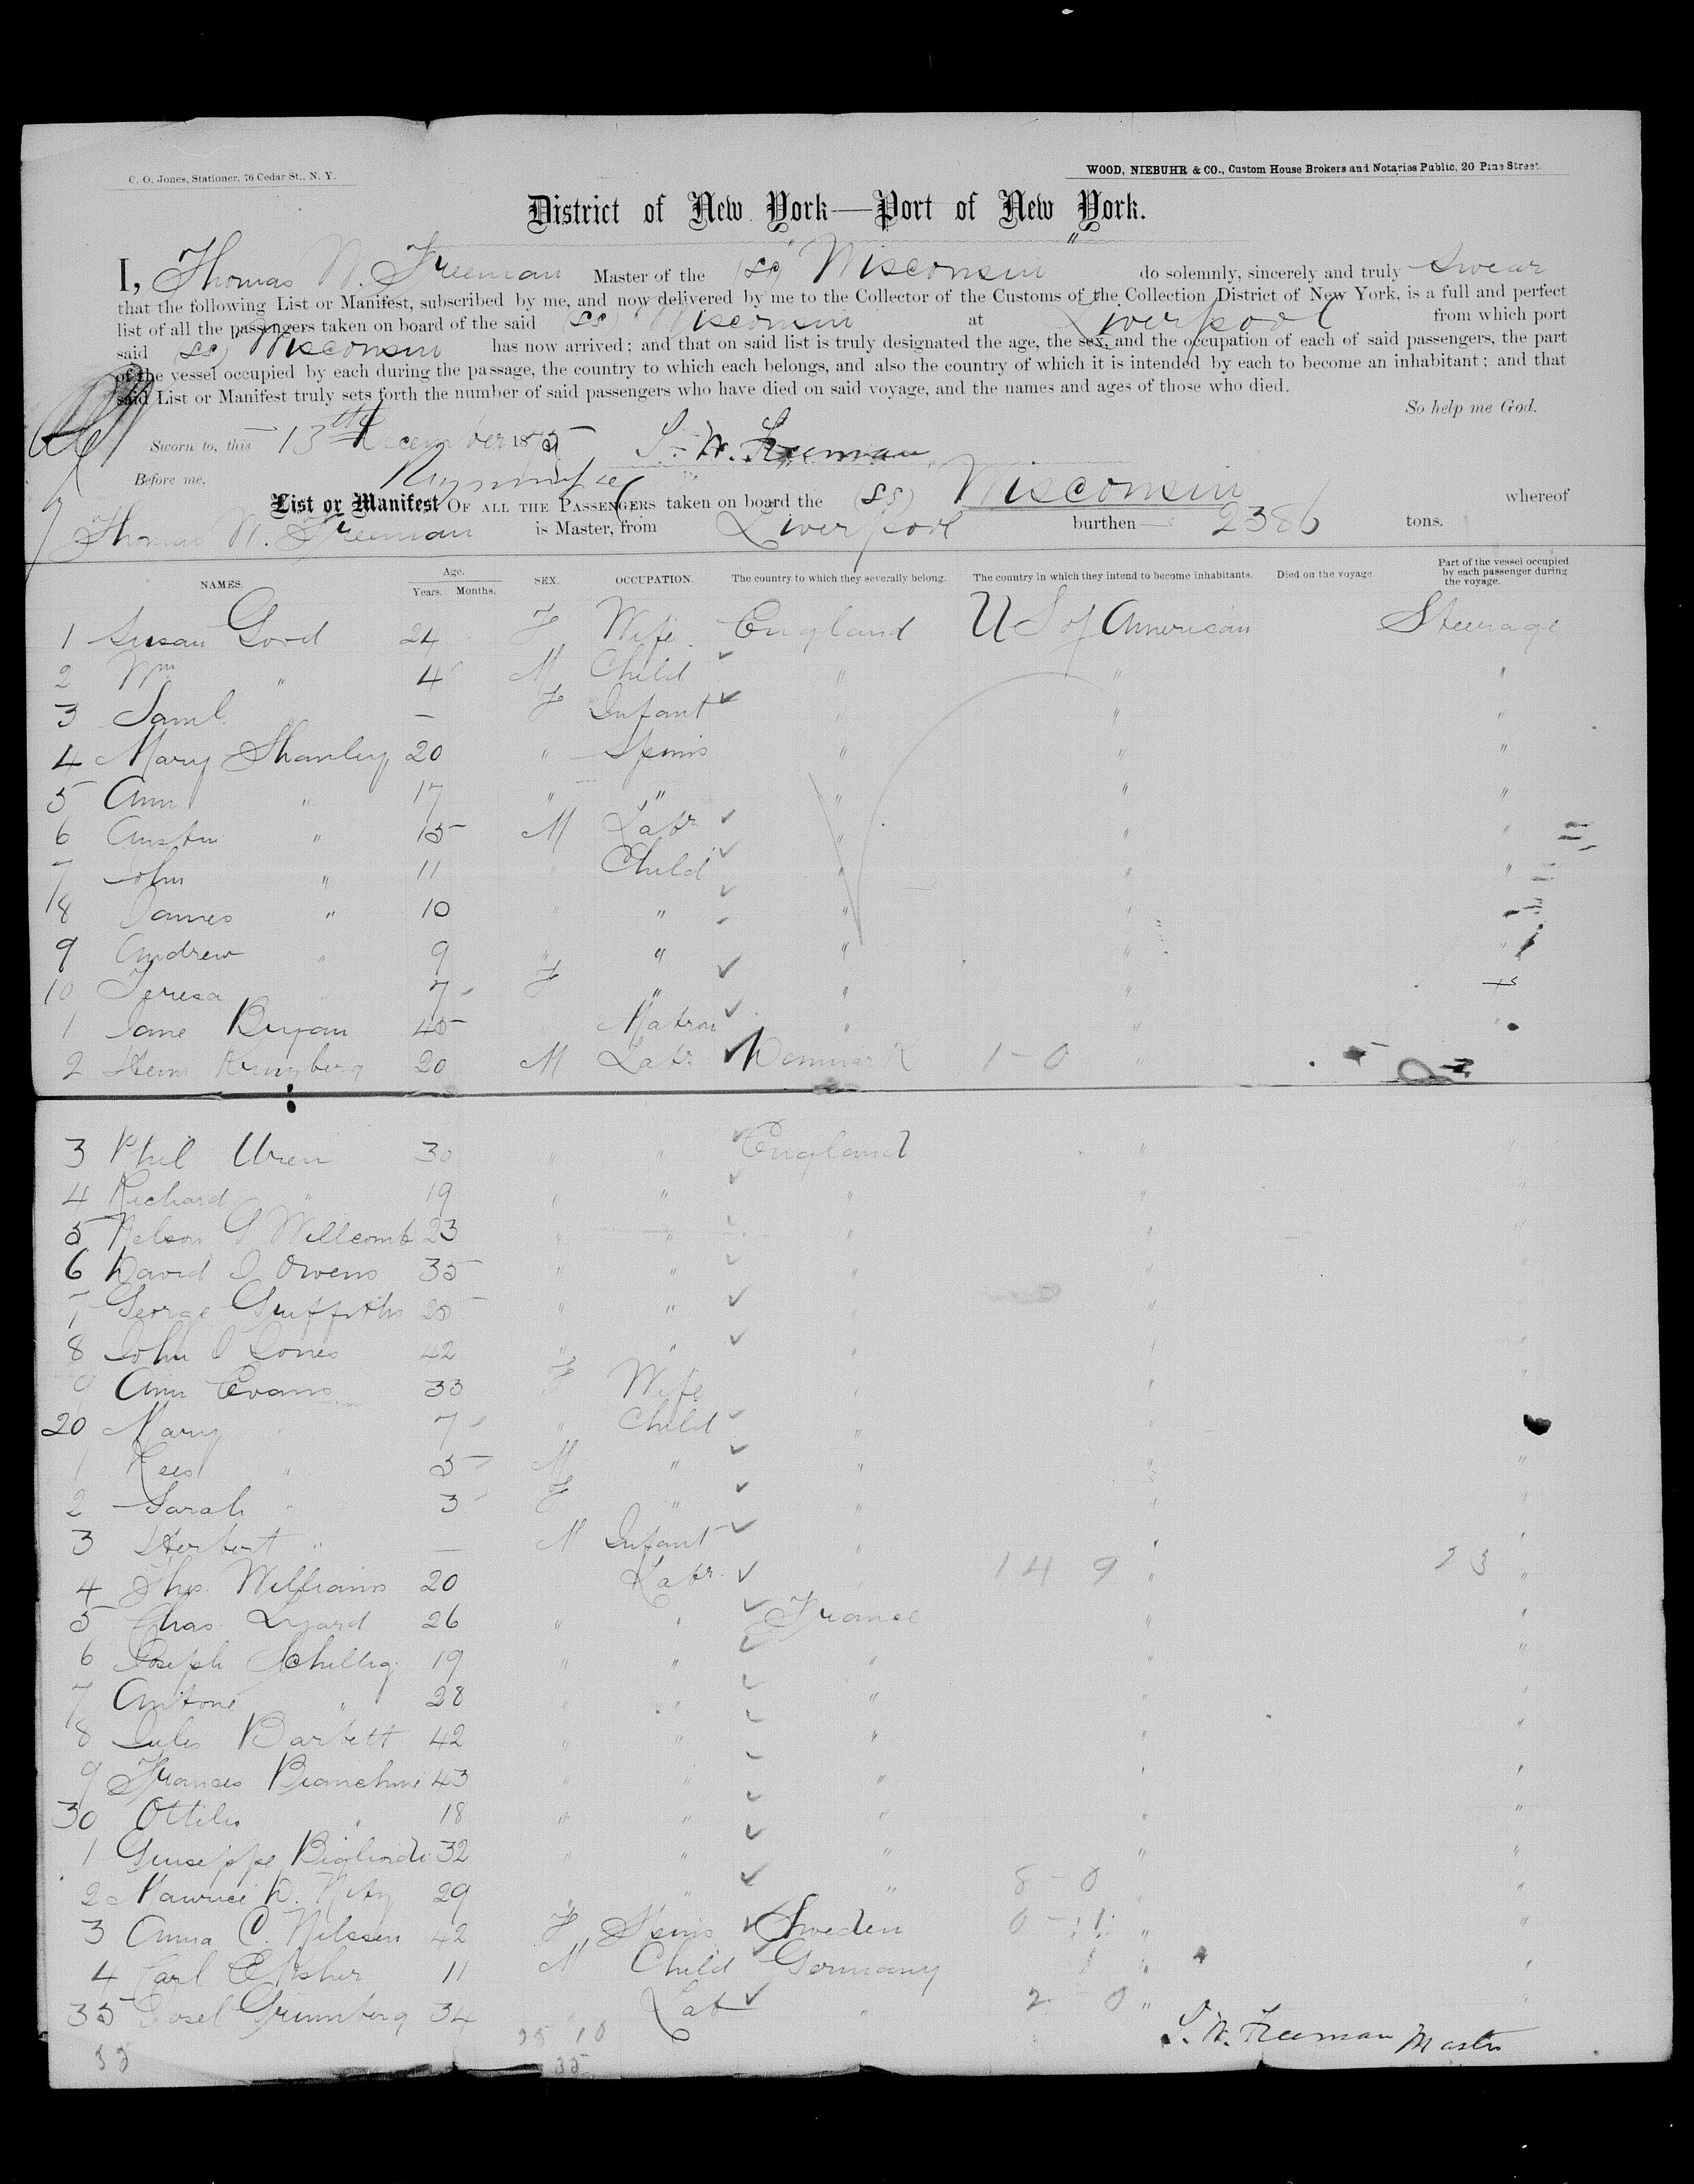 C. O. Jones, Stationer, 76 Cedar St., N. Y.
WOOD, NIEBUHR & CO., Custom House Brokers and Notaries Public, 20 Pine Street.
District of New York—Port of New York.
I, Thomas W. Freeman Master of the (SS) "Wisconsin" do solemnly, sincerely and truly swear
that the following List or Manifest, subscribed by me, and now delivered by me to the Collector of the Customs of the Collection District of New York, is a full and perfect
list of all the passengers taken on board of the said (SS) Wisconsin at Liverpool from which port
said (SS) Wisconsin has now arrived; and that on said list is truly designated the age, the sex, and the occupation of each of said passengers, the part
of the vessel occupied by each during the passage, the country to which each belongs, and also the country of which it is intended by each to become an inhabitant; and that
said List or Manifest truly sets forth the number of said passengers who have died on said voyage, and the names and ages of those who died.
So help me God.
Sworn to, this 13th December 1875 T. W. Freeman
Before me,
List or Manifest OF ALL THE PASSENGERS taken on board the (SS) Wisconsin whereof
Thomas W. Freeman is Master, from Liverpool burthen 2386 tons.
NAMES. Age. Years. Months. SEX. OCCUPATION. The country to which they severally belong. The country in which they intend to become inhabitants. Died on the voyage. Part of the vessel occupied by each passenger during the voyage.
1 Susan Good 24 F Wife England U S of American Steerage
2 Wm " 4 M Child " " "
3 Saml — F Infant " "
4 Mary Shanley 20 " Spins " " "
5 Ann " 17 " " " " "
6 Austin " 15 M Labr " " "
7 John " 11 Child " " "
8 James " 10 " " " "
9 Andrew " 9 " " " " "
10 Teresa " 7 F " " "
1 Jane Bryan 45 " Matron " " "
2 20 M Labr Denmark 1 - 0 "
3 Phil Uren 30 " " England " "
4 Richard " 19 " " " " "
5 Nelson G Willcomb 23 " " " " "
6 David J Owens 35 " " " " "
7 George Griffiths 25 " " " " "
8 John J Jones 42 " " " " "
9 Ann Evans 33 F Wife " " "
20 Mary " 7 " Child " "
1 Rees " 5 M " " " "
2 Sarah " 3 F " " " "
3 Herbert " — M Infant " " "
4 Thos. Williams 20 Labr. 149 " 23 "
5 Chas. Lyard 26 " " France " "
6 Joseph Schillig 19 " " " "
7 Antone " 28 " " " " "
8 Jules Barbett 42 " " " " "
9 Frances Bianchini 43 " " " " "
30 Ottilis " 18 " " " " "
1 Giuseppe 32 " " " " "
2 Maurice D. 29 " " " 8 - 0 " "
3 Anna C. Nilssen 42 F Spins Sweden 0 - 1 " "
4 Carl 11 M Child Germany 1 " "
35 Grunberg 34 Lab " 2 0 " "
T. W. Freeman Master
35 25 10
35